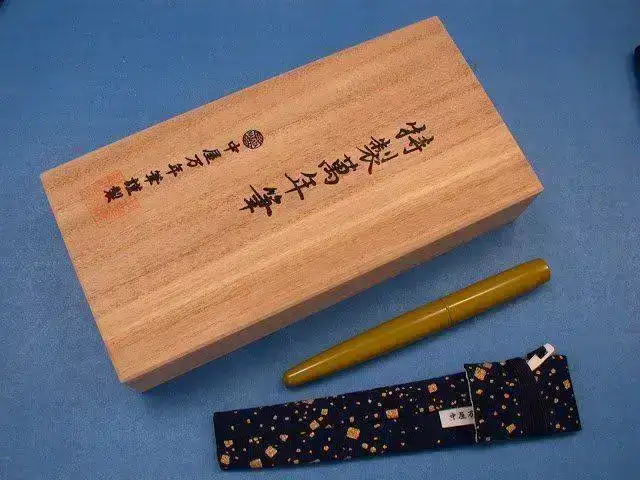 特製萬年筆
中屋万年筆謹製
中屋万